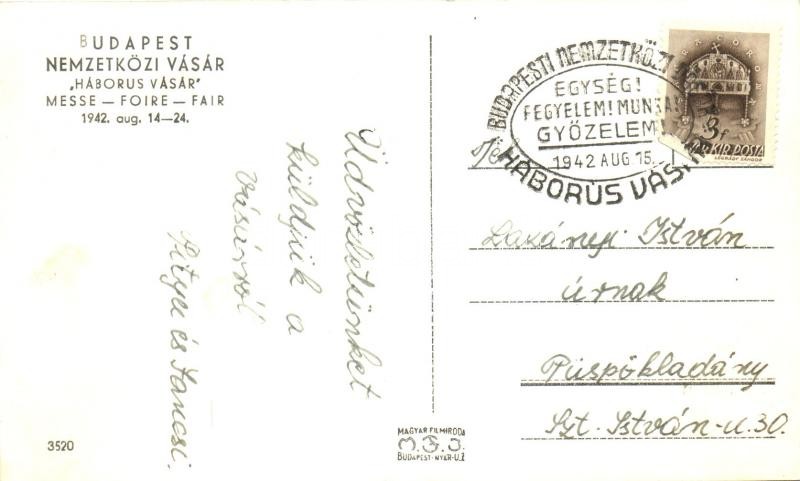 BUDAPEST
NEMZETKÖZI VÁSÁR
„HÁBORUS VÁSÁR"
MESSE — FOIRE — FAIR
1942. aug. 14—24.
Üdvözletünket
küldjük a
vásárról
Pityu és Jancsi.
3520
MAGYAR FILMIRODA
M.F.I.
BUDAPEST
BUDAPESTI NEMZETKÖZI
EGYSÉG!
FEGYELEM! MUNKA
GYŐZELEM
1942 AUG. 15.
HÁBORÚS VÁSÁR
SACRA CORONA
3f
M. KIR. POSTA
LÉGRÁDY SÁNDOR
István
úrnak
Püspökladány
Szt. István-u. 30.